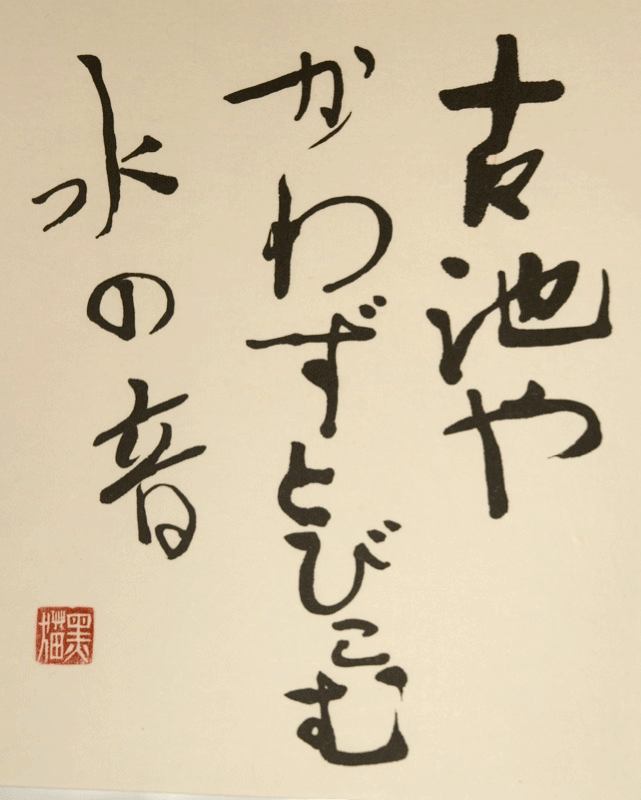 古池や
かわずとびこむ
水の音
黑猫